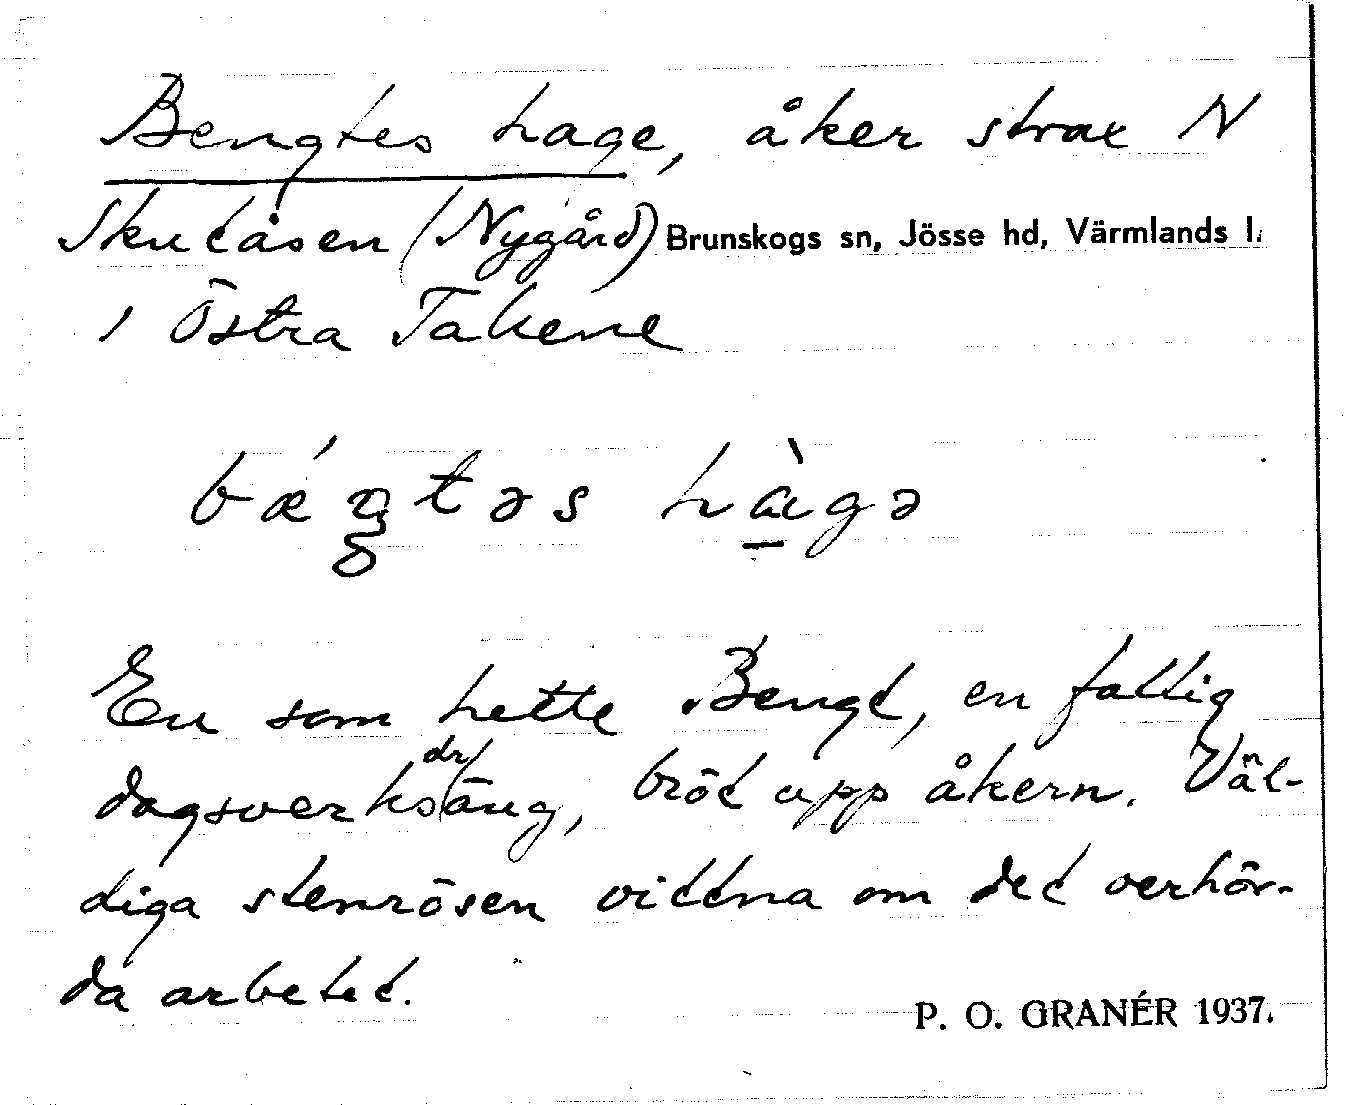 Bengtes hage, åker strax N
Skutåsen (Nygård) Brunskogs sn, Jösse hd, Värmlands l.
i Östra Takene
bǽŋtəs hàgə
En som hette Bengt, en fattig
dagsverksdräng, bröt upp åkern. Väl-
diga stenrösen vittna om det oerhör-
da arbetet.
P. O. GRANÉR 1937.